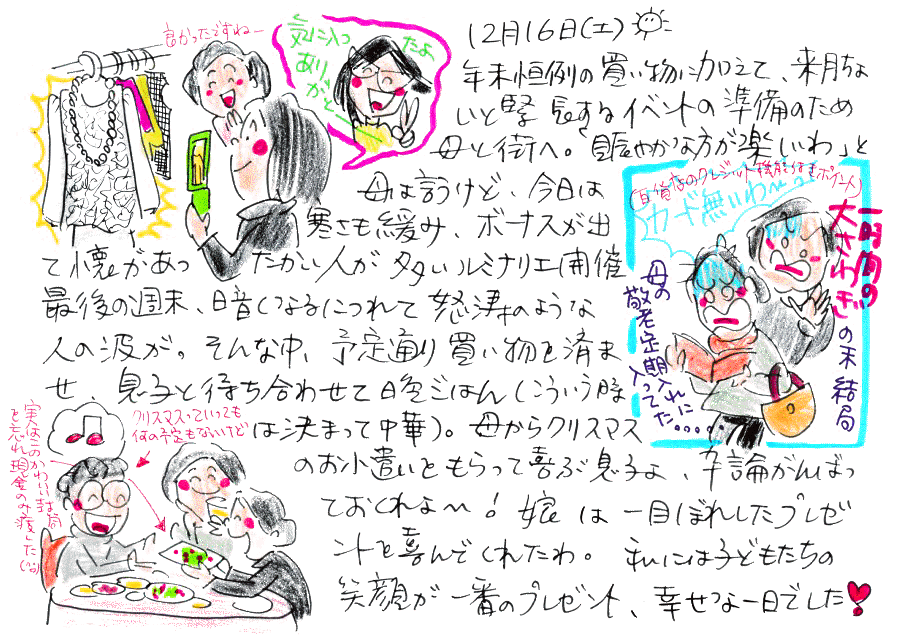 12月16日(土)
年末恒例の買い物に加えて、来月ちょ
いと緊張するイベントの準備のため
母と街へ。「賑やかな方が楽しいわ」と
母は言うけど、今日は
寒さも緩み、ボーナスが出
て懐があったかい人が多いルミナリエ開催
最後の週末、暗くなるにつれて怒涛のような
人の波が。そんな中、予定通り買い物を済ま
せ、息子と待ち合わせて晩ごはん(こういう時
は決まって中華)。母からクリスマス
のお小遣いをもらって喜ぶ息子よ、弁論がんばっ
ておくれよ〜!娘は一目ぼれしたプレゼ
ントを喜んでくれたわ。私には子どもたちの
笑顔が一番のプレゼント、幸せな一日でした
良かったですねー
気に入っ
たよ
あり
がと
(百貨店のクレジット機能つきポイント)
カード無いわ〜
一時間の
大さわぎの末結局
母の
敬老定期入れに
入ってた.....
クリスマスっていっても
何の予定もないけど
実はこのかわいい封筒
を忘れ現金のみ渡した